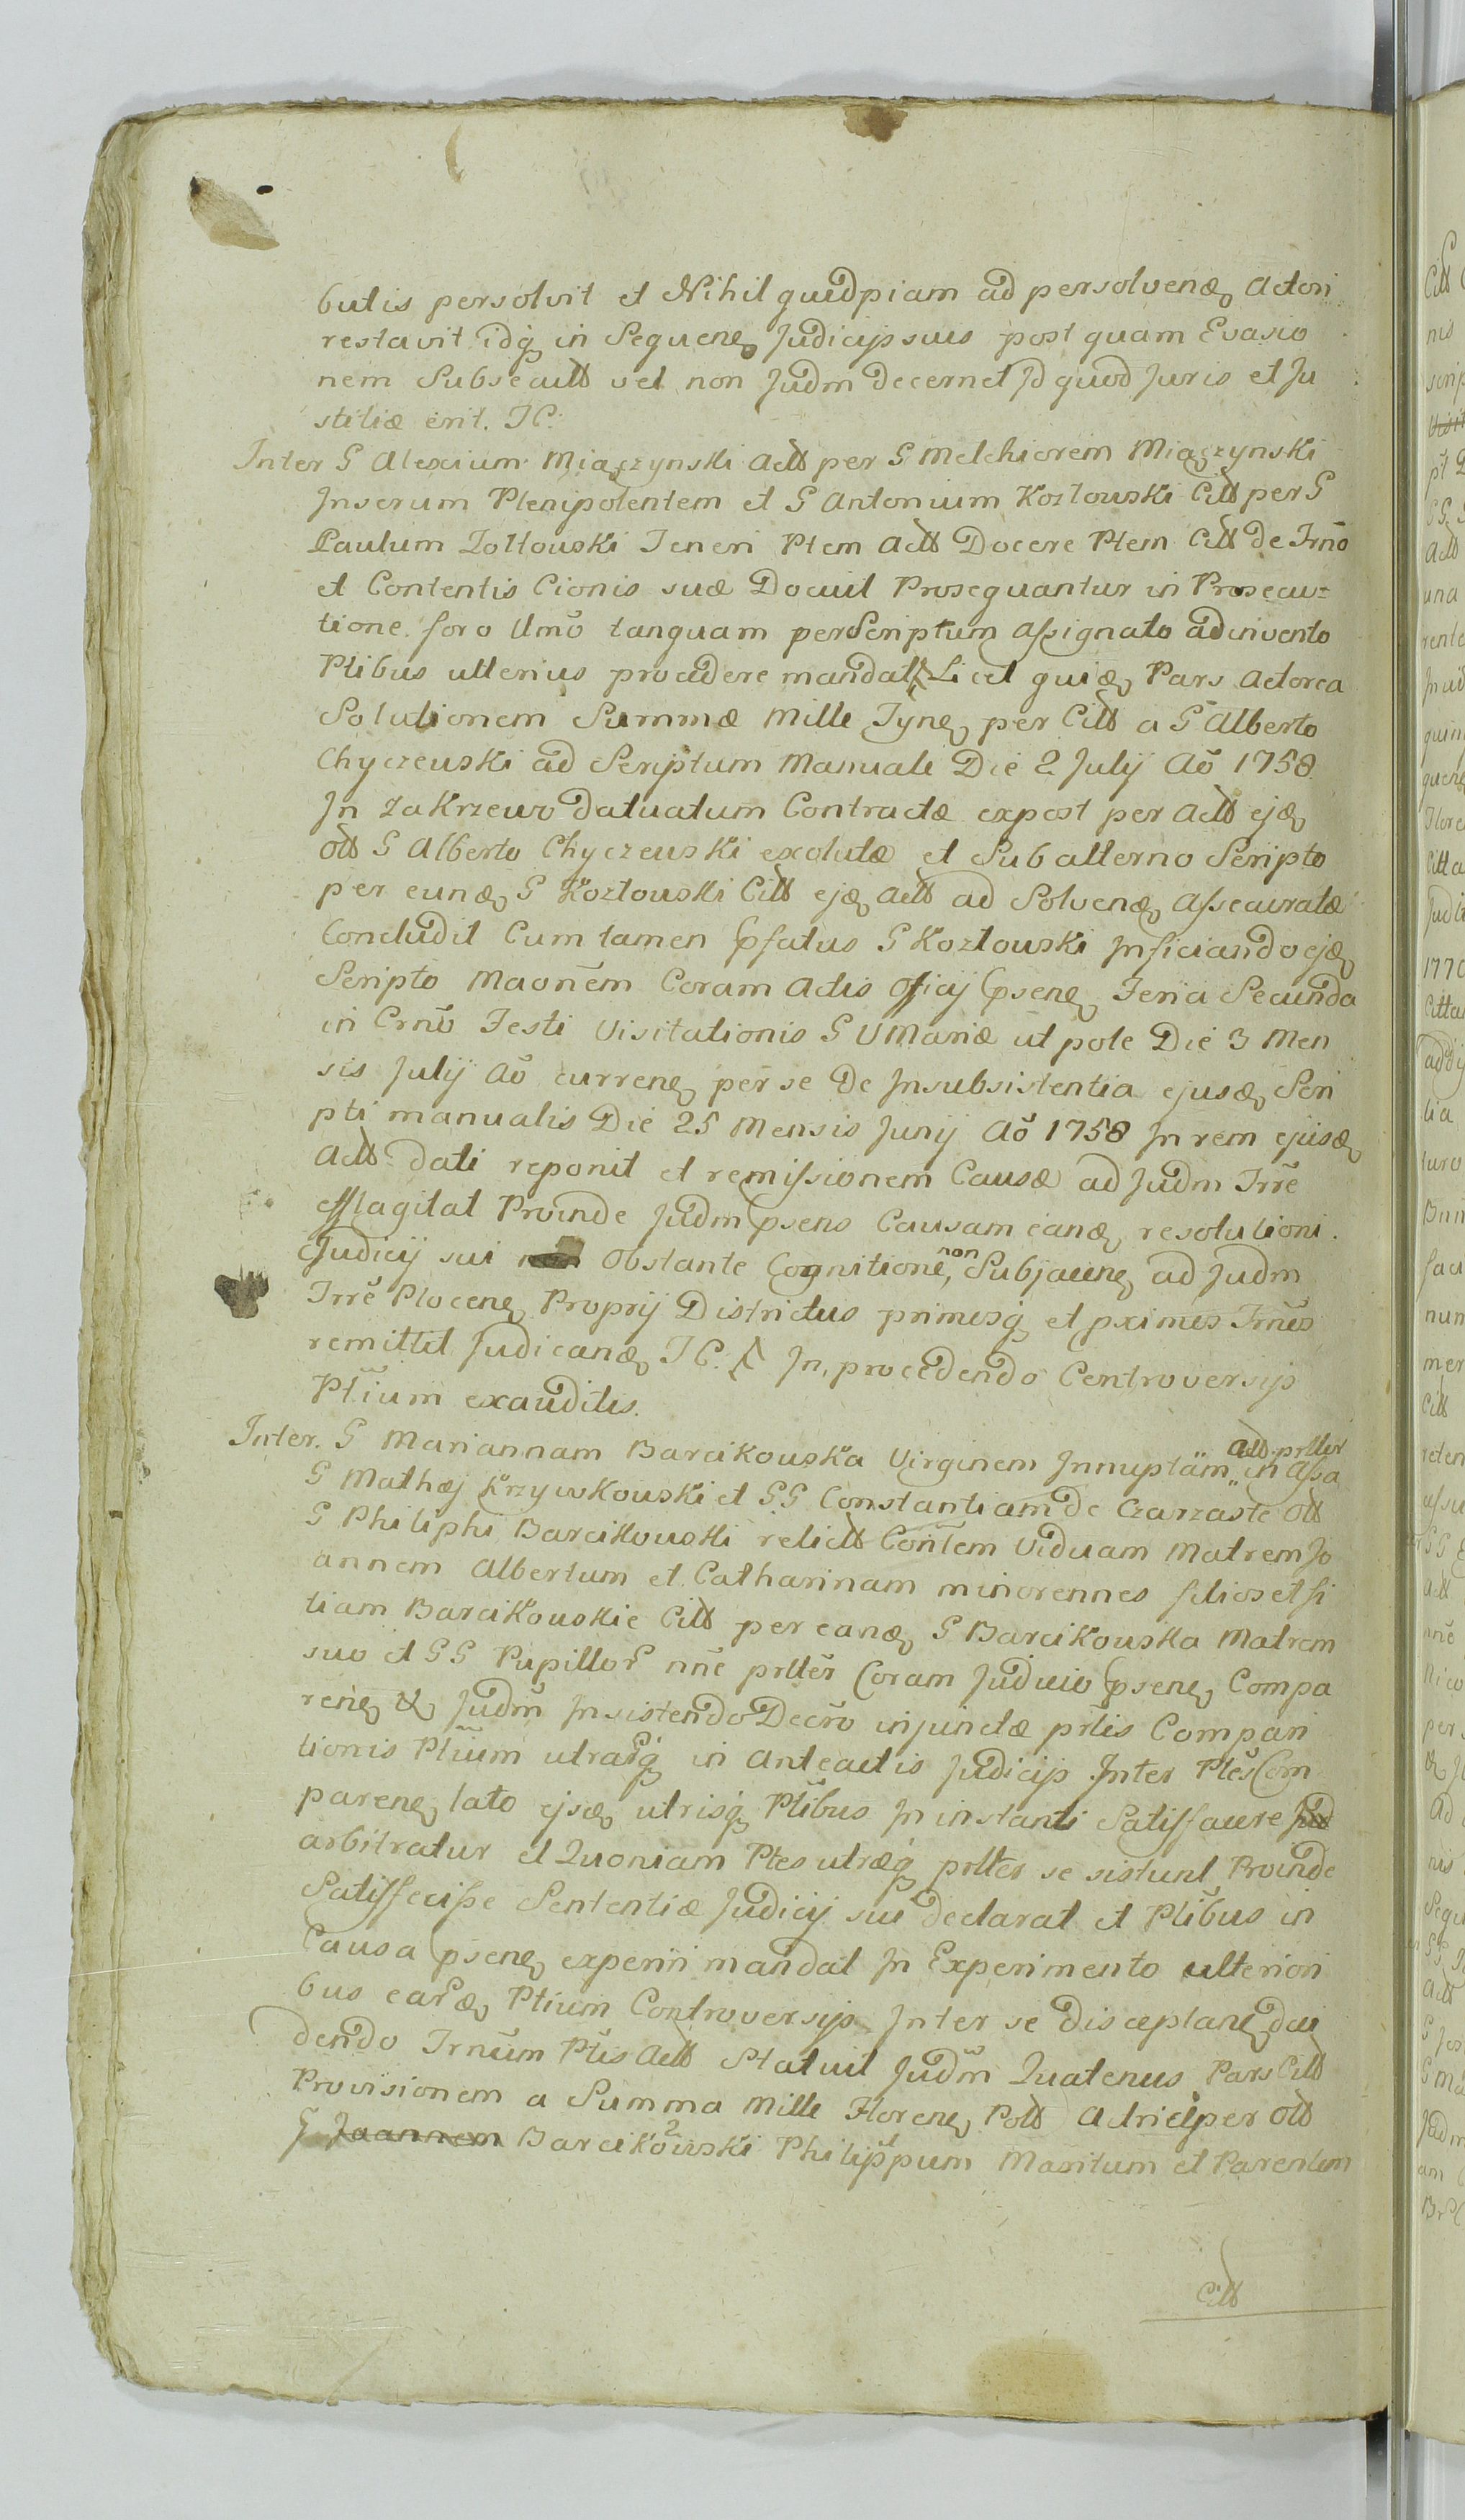 butis persolvit et Nihil quidpiam ad persolvend, Actori
restavit idq, in Sequen, Judicijs suis post quam Evasio
nem Subsecutt vel non Judm decernet Id quod Juris et Ju
stitiæ erit. JC.
Inter G Alexium Miączynski Actt per G Melchiorem Miączynski
Inserum Plenipotentem et G Antonium Kozlowski Citt per G
Paulum Zoltowski Teneri Ptem Actt Docere Ptem Citt de Trno
et Contentis Cionis suæ Docuit Prosequantur in Prosecu=
tione foro Umo tanquam per Scriptum assignato adinvento
Ptibus ulterius procedere mandat Licet quid, Pars Actorea
Solutionem Summæ Mille Tyn, per Citt a G Alberto
Chyczewski ad Scriptum Manuale Die 2 Julij Ao 1758
In Zakrzewo datuatum Contractæ expost per Actt ejd,
ott G Alberto Chyczewski exolutæ et Sub alterno Scripto
per eund, G Kozlowski Citt ejd, Actt ad Solvend, Assecuratæ
Concludit Cum tamen psfatus G Kozlowski Inficiando ejd,
Scripto Maonem Coram Actis Officij psen, Feria Secunda
in Crno Festi Visitationis G V Mariæ ut pote Die 3 Men
sis Julij Ao curren, per se De Insubsistentia ejusd, Scri
pti manualis Die 25 Mensis Junij Ao 1758 In rem ejusd,
Actt dati reponit et remissionem Causæ ad Judm Trre
efflagitat Proinde Judm psens Causam eand, resolutioni
Judicij sui Obstante Cognitione, non Subjacen, ad Judm
Trre Plocen, Proprij Districtus primisq, et pximis Trnis
remittit Judicand, JC. In procedendo Controversijs
Ptium exauditis.
Inter G Mariannam Barcikowska Virginem Innuptam Actt prltter in Assa
G Mathæj Krzywkowski et GG Constantiam de Czarzaste Ott
G Philiphi Barcikowski relictt Contem Viduam Matrem Jo
annem Albertum et Catharinam minorennes filios et fi
liam Barcikowskie Citt per eand, G Barcikowska Matrem
suo et GG Pupillor nne prltter Coram Judicio psen, Compa
ren, & Judm Insistendo Decro injunctæ prlis Compari
tionis Ptium utrarq, in Anteactis Judicijs Inter Ptes Com
paren, lato ejsd, utrisq, Ptibus In instanti Satisfacere
arbitratur et Quoniam Ptes utræq, prltter se sistunt Proinde
Satisfecisse Sententiæ Judicij sui declarat et Ptibus in
Causa psen, experiri mandat In Experimento ulteriori
bus eard, Ptium Controversijs Inter se disceptan, deci
dendo Trnum Ptis Actt Statuit Judm Quatenus Pars Citt
Provisionem a Summa Mille Floren, Poll Actrici per Ott
G Joannem Barcikowski 2 Philippum 1 Maritum et Parentem
Citt